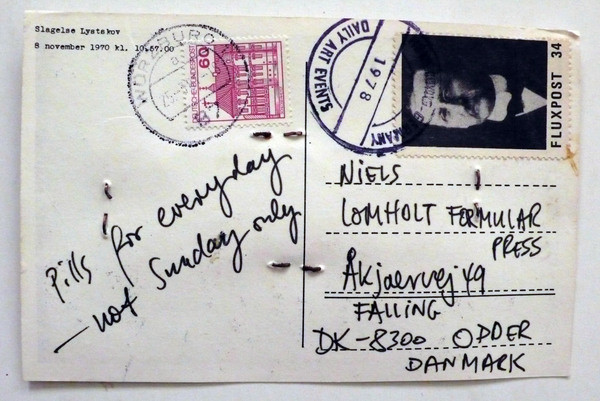 Slagelse Lystskov
8 november 1970 kl. 10.67.00
WÜRZBURG
DEUTSCHE BUNDESPOST
60
DAILY ART EVENTS
1978
FLUXPOST 34
Pills for everyday
— not Sunday only
NIELS
LOMHOLT FORMULAR
PRESS
Åkjaervej 49
FALLING
DK-8300 ODDER
DANMARK